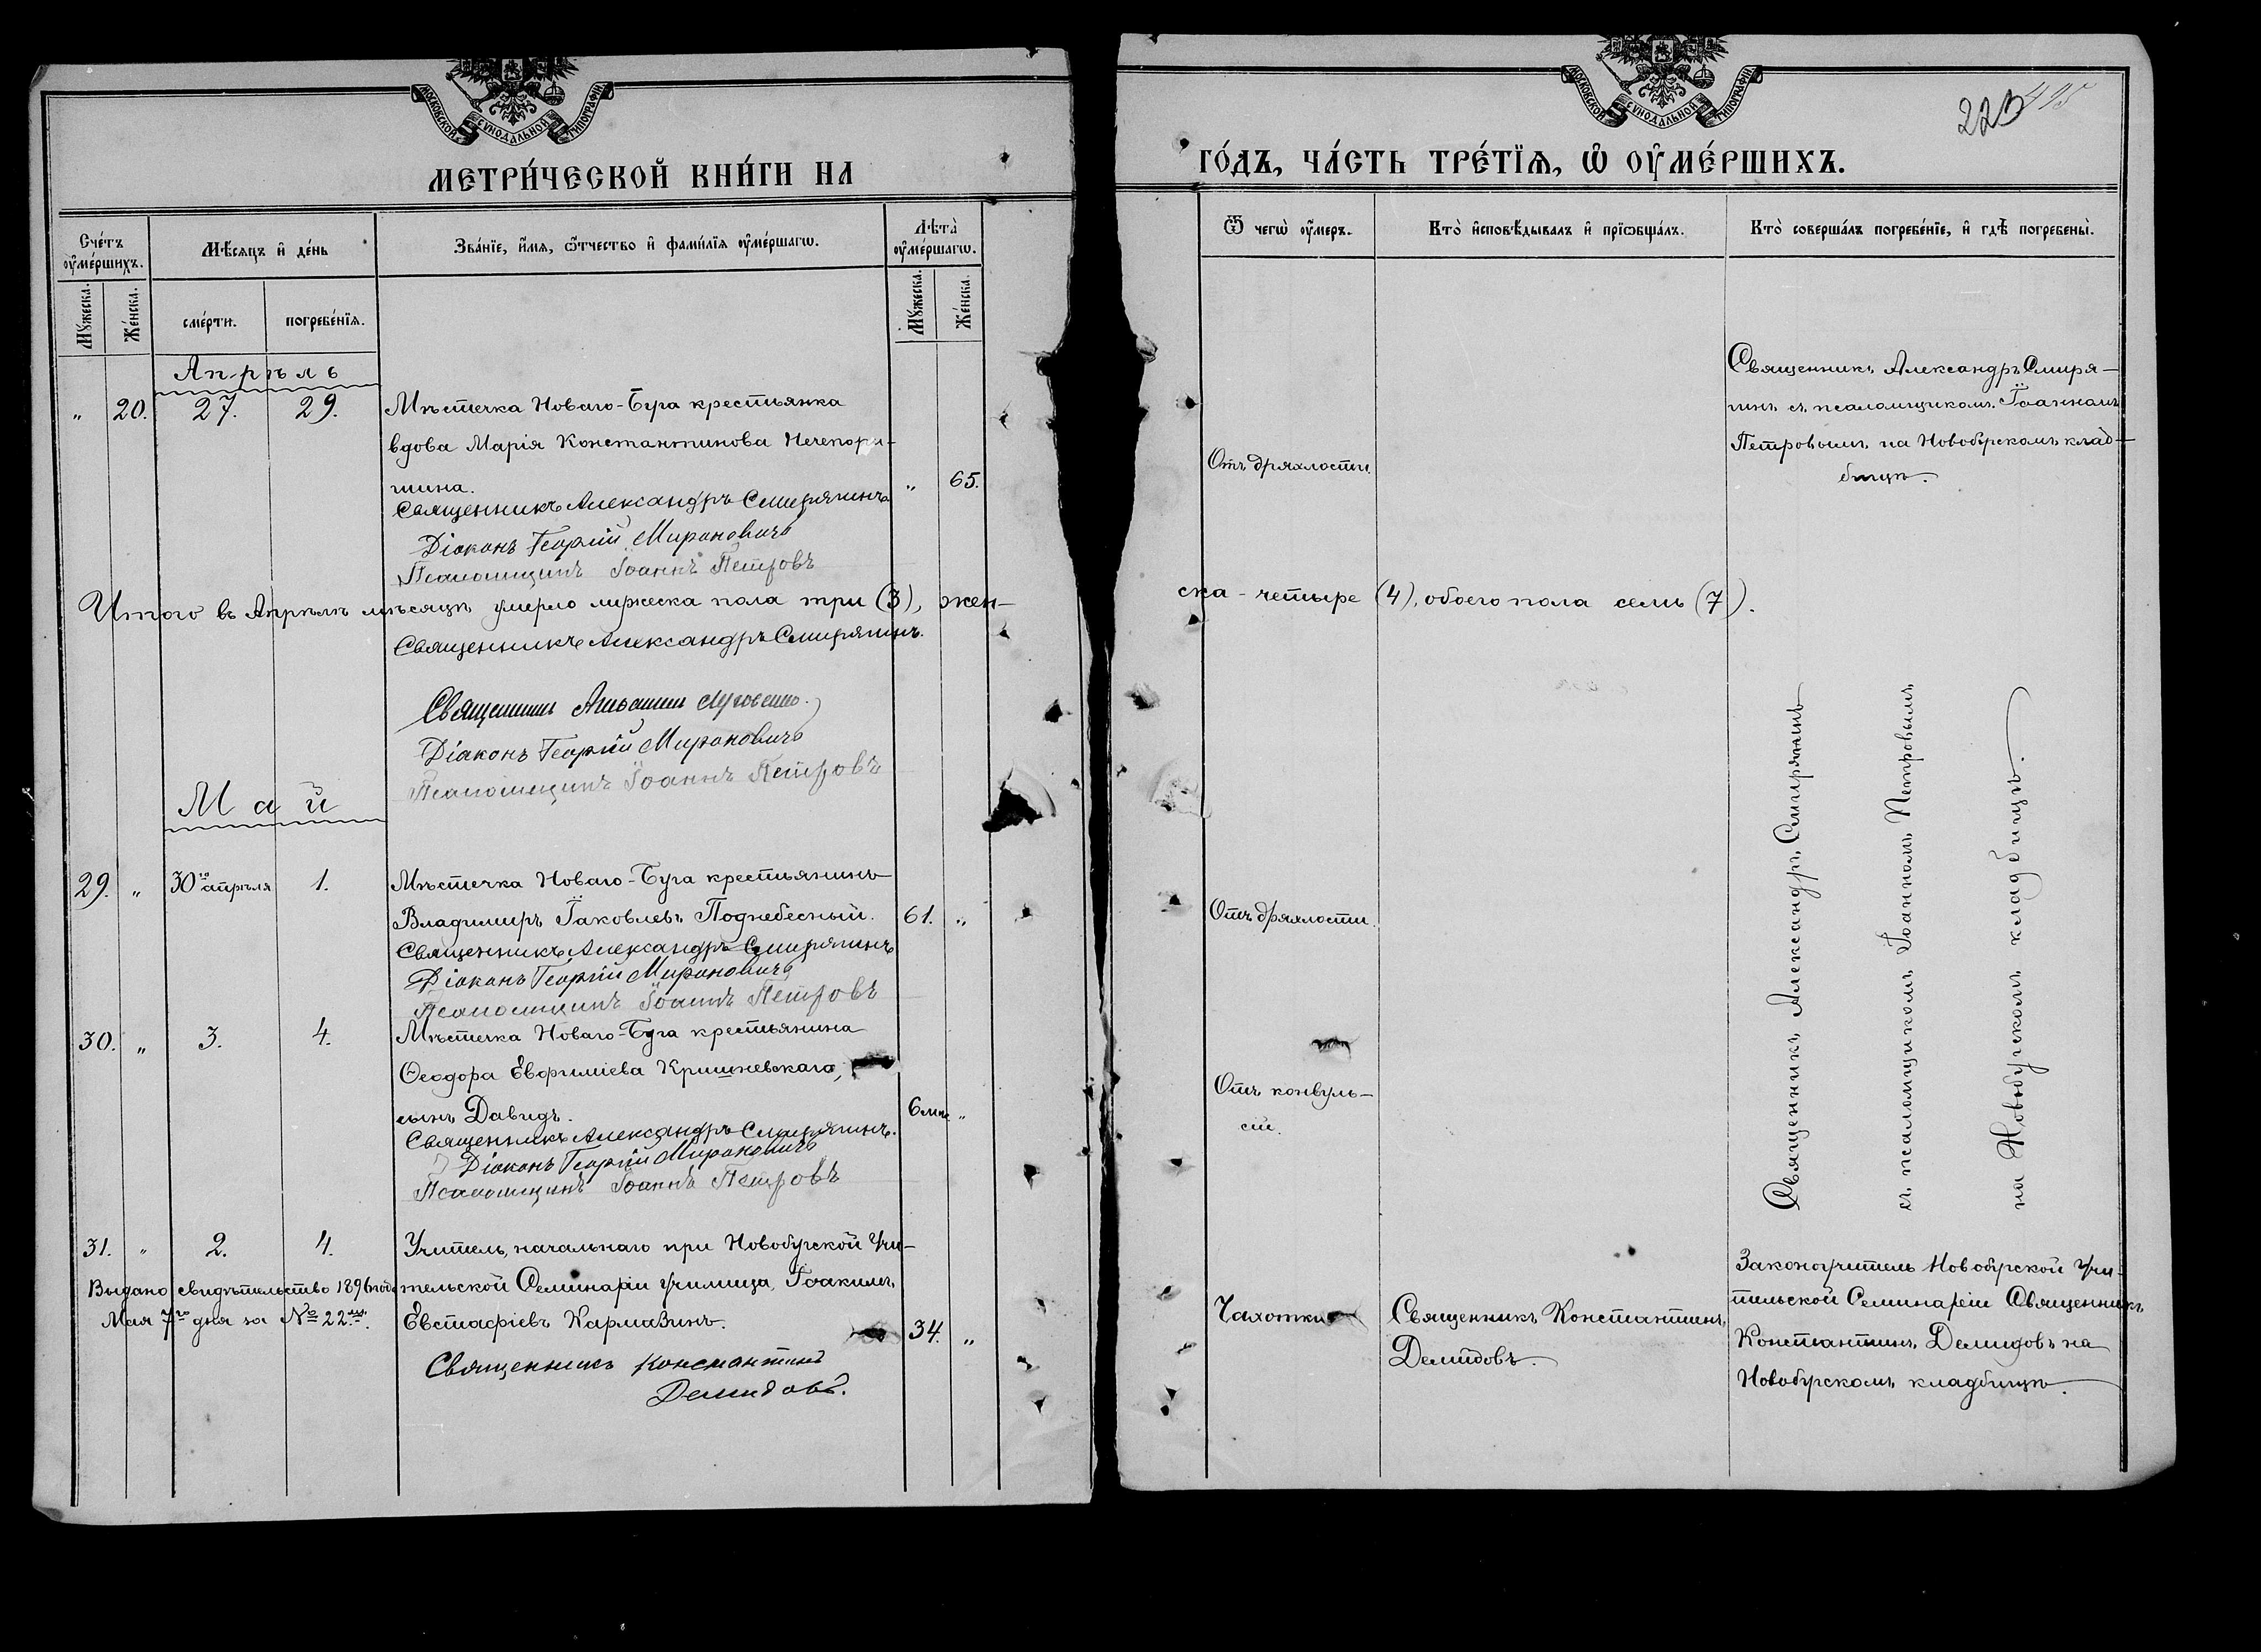 МОСКОВСКОЙ СѴНОДАЛЬНОЙ ТИПОГРАФІИ
МЕТРИ́ЧЕСКОЙ КНИ́ГИ НА
Сче́тъ ᲂу҆ме́ршихъ.
Мꙋ́жеска.
Же́нска.
Мѣ́сяцъ и҆ де́нь
сме́рти.
погребе́нїѧ.
Зва́нїе, и҆́мѧ, ѻ҆́тчество и҆ фами́лїѧ ᲂу҆ме́ршагѡ.
Лѣта̀ ᲂу҆ме́ршагѡ.
Мꙋ́жеска.
Же́нска.
Апрѣль
„ 20. 27. 29. Мѣстечка Новаго-Буга крестьянка
вдова Марія Константинова Нечепори-
шина. „ 65.
Священникъ Александръ Смирягинъ
Діаконъ Георгій Мироновичъ
Псаломщикъ Іоаннъ Петровъ
Итого въ Апрѣлѣ мѣсяцѣ умерло мужеска пола три (3), жен-
Священникъ Александръ Смирягинъ.
Священникъ
Діаконъ Георгій Мироновичъ
Псаломщикъ Іоаннъ Петровъ
Май
29. „ 30го апрѣля 1. Мѣстечка Новаго-Буга крестьянинъ
Владимиръ Іаковлевъ Поднебесный. 61. „
Священникъ Александръ Смирягинъ
Діаконъ Георгій Мироновичъ
Псаломщикъ Іоаннъ Петровъ
30. „ 3. 4. Мѣстечка Новаго-Буга крестьянина
Ѳеодора Евфиміева Кришневскаго,
сынъ Давидъ. 6 мц. „
Священникъ Александръ Смирягинъ.
Діаконъ Георгій Мироновичъ
Псаломщикъ Іоаннъ Петровъ
31. „ 2. 4. Учитель, начальнаго при Новобугской Учи-
Выдано свидѣтельство 1896 года
тельской Семинаріи училища, Іоакимъ
Мая 7го дня за № 22
Евстафіевъ Кармазинъ. 34. „
Священникъ Константинъ
Демидовъ.
МОСКОВСКОЙ СѴНОДАЛЬНОЙ ТИПОГРАФІИ
495
223
ГО́ДЪ, ЧА́СТЬ ТРЕ́ТЇѦ, Ѡ҆ ОУ҆МЕ́РШИХЪ.
Ѿ чегѡ̀ ᲂу҆́меръ.
Кто̀ и҆сповѣ́дывалъ и҆ прїѡбща́лъ.
Кто̀ соверша́лъ погребе́нїе, и҆ гдѣ̀ погребены̀.
Священникъ Александръ Смиря-
гинъ съ псаломщикомъ Іоанномъ
Петровымъ на Новобугскомъ клад-
бищѣ.
Отъ дряхлости.
ска - четыре (4), обоего пола семь (7).
Отъ дряхлости.
Отъ конвуль-
сій.
Священникъ Александръ Смирягинъ
съ псаломщикомъ Іоанномъ Петровымъ
на Новобугскомъ кладбищѣ.
Чахотки
Священникъ Константинъ
Демидовъ.
Законоучитель Новобугской Учи-
тельской Семинаріи Священникъ
Константинъ Демидовъ на
Новобугскомъ кладбищѣ.